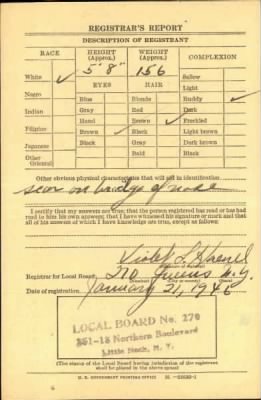 REGISTRAR'S REPORT
DESCRIPTION OF REGISTRANT
RACE HEIGHT (Approx.) WEIGHT (Approx.) COMPLEXION
White ✓ 5' 8" 156 Sallow
EYES HAIR Light
Negro Blue Blonde Ruddy ✓
Indian Gray Red Dark
Hazel Brown ✓ Freckled
Filipino Brown Black Light brown
Japanese Black Gray Dark brown
Other Oriental Bald Black
Other obvious physical characteristics that will aid in identification
scar on bridge of nose
I certify that my answers are true; that the person registered has read or has had read to him his own answers; that I have witnessed his signature or mark and that all of his answers of which I have knowledge are true, except as follows:
Violet L.
Registrar for Local Board 270 Queens N.Y.
(Number) (City or county) (State)
Date of registration January 21, 1946
LOCAL BOARD No. 270
251-18 Northern Boulevard
Little Neck, N. Y.
(The stamp of the Local Board having jurisdiction of the registrant shall be placed in the above space)
U. S. GOVERNMENT PRINTING OFFICE